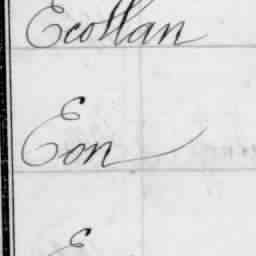 Ecollan
Eon
E